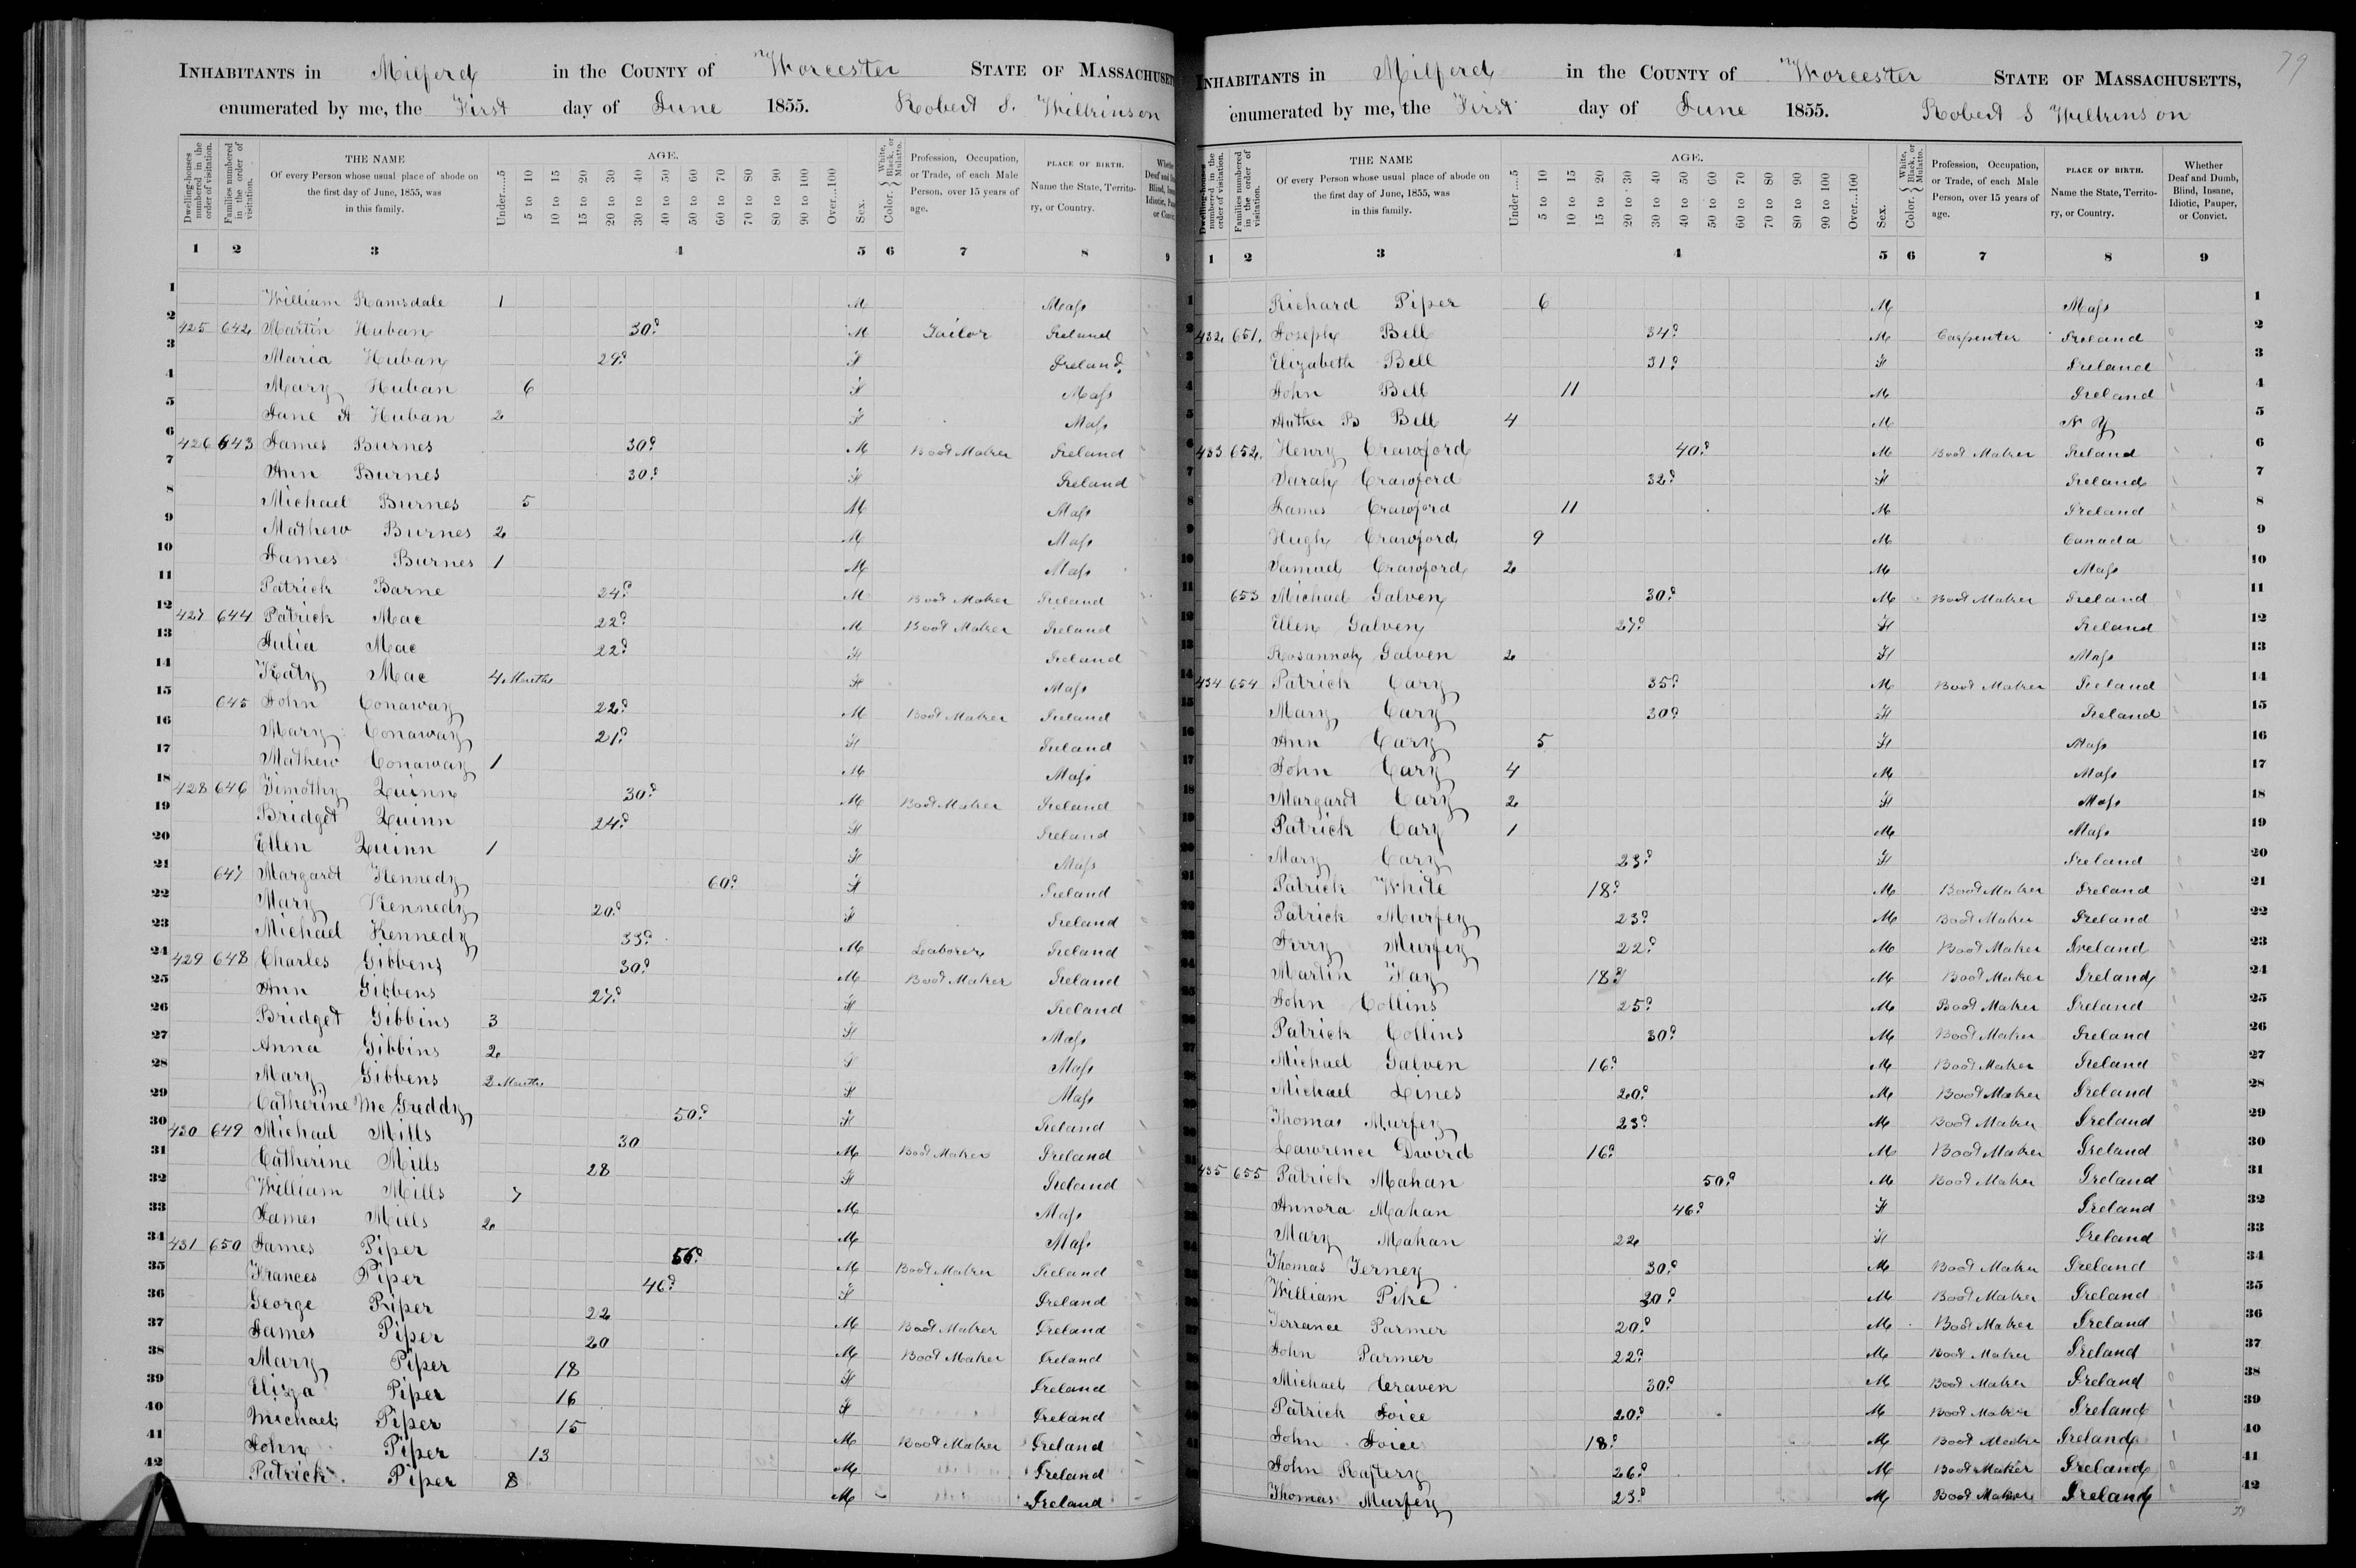 79
INHABITANTS in Milford in the COUNTY of Worcester STATE OF MASSACHUSET
enumerated by me, the First day of June 1855. Robert S. Wilkinson
Dwelling-houses numbered in the order of visitation. Families numbered in the order of visitation. THE NAME Of every Person whose usual place of abode on the first day of June, 1855, was in this family. AGE. Under....5 5 to 10 10 to 15 15 to 20 20 to 30 30 to 40 40 to 50 50 to 60 60 to 70 70 to 80 80 to 90 90 to 100 Over...100 Sex. Color. { White, Black, or Mulatto. Profession, Occupation, or Trade, of each Male Person, over 15 years of age. PLACE OF BIRTH. Name the State, Territory, or Country.
1 2 3 4 5 6 7 8 9
1 William Ramsdale 1 M Mass
2 425 642 Martin Huban 30 M Tailor Ireland
3 Maria Huban 29 F Ireland
4 Mary Huban 6 F Mass
5 Jane A Huban 2 F Mass
6 426 643 James Burnes 30 M Boot Maker Ireland
7 Ann Burnes 30 F Ireland
8 Michael Burnes 5 M Mass
9 Mathew Burnes 2 M Mass
10 James Burnes 1 M Mass
11 Patrick Barne 24 M Boot Maker Ireland
12 427 644 Patrick Mac 22 M Boot Maker Ireland
13 Julia Mac 22 F Ireland
14 Katy Mac 4 Months F Mass
15 645 John Conaway 22 M Boot Maker Ireland
16 Mary Conaway 21 F Ireland
17 Mathew Conaway 1 M Mass
18 428 646 Timothy Quinn 30 M Boot Maker Ireland
19 Bridget Quinn 24 F Ireland
20 Ellen Quinn 1 F Mass
21 647 Margaret Kennedy 60 F Ireland
22 Mary Kennedy 20 F Ireland
23 Michael Kennedy 33 M Laborer Ireland
24 429 648 Charles Gibbens 30 M Boot Maker Ireland
25 Ann Gibbens 27 F Ireland
26 Bridget Gibbins 3 F Mass
27 Anna Gibbins 2 F Mass
28 Mary Gibbens 2 Months F Mass
29 Catherine Mc Greddy 50 F Ireland
30 430 649 Michael Mills 30 M Boot Maker Ireland
31 Catherine Mills 28 F Ireland
32 William Mills 7 M Mass
33 James Mills 2 M Mass
34 431 650 James Piper 56 M Boot Maker Ireland
35 Frances Piper 46 F Ireland
36 George Piper 22 M Boot Maker Ireland
37 James Piper 20 M Boot Maker Ireland
38 Mary Piper 18 F Ireland
39 Eliza Piper 16 F Ireland
40 Michael Piper 15 M Boot Maker Ireland
41 John Piper 13 M Ireland
42 Patrick Piper 8 M Ireland
INHABITANTS in Milford in the COUNTY of Worcester STATE OF MASSACHUSETTS,
enumerated by me, the First day of June 1855. Robert S Wilkinson
Dwelling-houses numbered in the order of visitation. Families numbered in the order of visitation. THE NAME Of every Person whose usual place of abode on the first day of June, 1855, was in this family. AGE. Under....5 5 to 10 10 to 15 15 to 20 20 to 30 30 to 40 40 to 50 50 to 60 60 to 70 70 to 80 80 to 90 90 to 100 Over...100 Sex. Color. { White, Black, or Mulatto. Profession, Occupation, or Trade, of each Male Person, over 15 years of age. PLACE OF BIRTH. Name the State, Territory, or Country. Whether Deaf and Dumb, Blind, Insane, Idiotic, Pauper, or Convict.
1 2 3 4 5 6 7 8 9
1 Richard Piper 6 M Mass 1
2 432 651 Joseph Bell 34 M Carpenter Ireland 2
3 Elizabeth Bell 31 F Ireland 3
4 John Bell 11 M Ireland 4
5 Auther B Bell 4 M N Y 5
6 433 652 Henry Crawford 40 M Boot Maker Ireland 6
7 Sarah Crawford 32 F Ireland 7
8 James Crawford 11 M Ireland 8
9 Hugh Crawford 9 M Canada 9
10 Samuel Crawford 2 M Mass 10
11 653 Michael Galven 30 M Boot Maker Ireland 11
12 Ellen Galven 27 F Ireland 12
13 Rosannah Galven 2 F Mass 13
14 434 654 Patrick Cary 35 M Boot Maker Ireland 14
15 Mary Cary 30 F Ireland 15
16 Ann Cary 5 F Mass 16
17 John Cary 4 M Mass 17
18 Margaret Cary 2 F Mass 18
19 Patrick Cary 1 M Mass 19
20 Mary Cary 23 F Ireland 20
21 Patrick White 18 M Boot Maker Ireland 21
22 Patrick Murfey 23 M Boot Maker Ireland 22
23 Jerry Murfey 22 M Boot Maker Ireland 23
24 Martin Kay 18 M Boot Maker Ireland 24
25 John Collins 25 M Boot Maker Ireland 25
26 Patrick Collins 30 M Boot Maker Ireland 26
27 Michael Galven 16 M Boot Maker Ireland 27
28 Michael Lines 20 M Boot Maker Ireland 28
29 Thomas Murfey 23 M Boot Maker Ireland 29
30 Lawrence Dwird 16 M Boot Maker Ireland 30
31 435 655 Patrick Mahan 50 M Boot Maker Ireland 31
32 Annora Mahan 46 F Ireland 32
33 Mary Mahan 22 F Ireland 33
34 Thomas Terney 30 M Boot Maker Ireland 34
35 William Pike 30 M Boot Maker Ireland 35
36 Terrance Parmer 20 M Boot Maker Ireland 36
37 John Parmer 22 M Boot Maker Ireland 37
38 Michael Craven 30 M Boot Maker Ireland 38
39 Patrick Joice 20 M Boot Maker Ireland 39
40 John Joice 18 M Boot Maker Ireland 40
41 John Raftery 26 M Boot Maker Ireland 41
42 Thomas Murfey 23 M Boot Maker Ireland 42